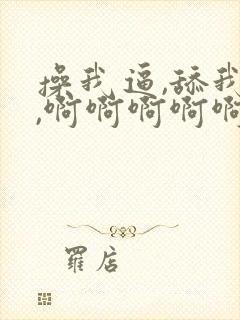 操我逼,舔我
,啊啊啊啊啊
罗店